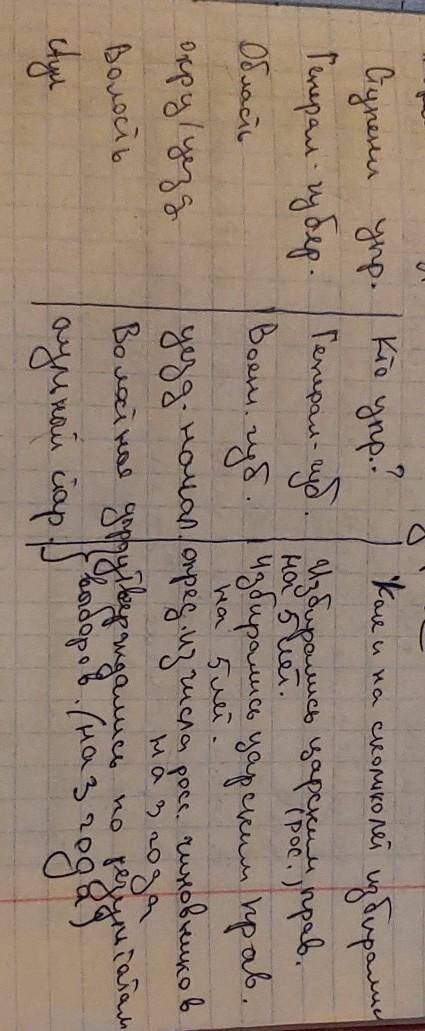 Ступени упр. Кто упр.? Как и на сколько лет избирались
Генерал-губер. Генерал-губ. Избирались царским прав.
на 5 лет. (рос.)
Область Воен. губ. Избирались царским прав.
на 5 лет.
окру/уезд уезд. начал. опред. из числа росс. чиновников
на 3 года
Волость Волостное утверждались по результатам
аул аульный стар. выборов. (на 3 года)